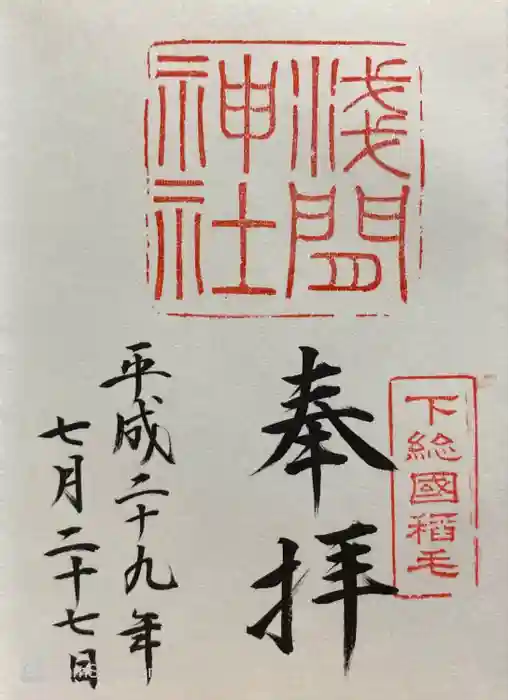 淺間
神社
下総國稲毛
奉拝
平成二十九年
七月二十七日